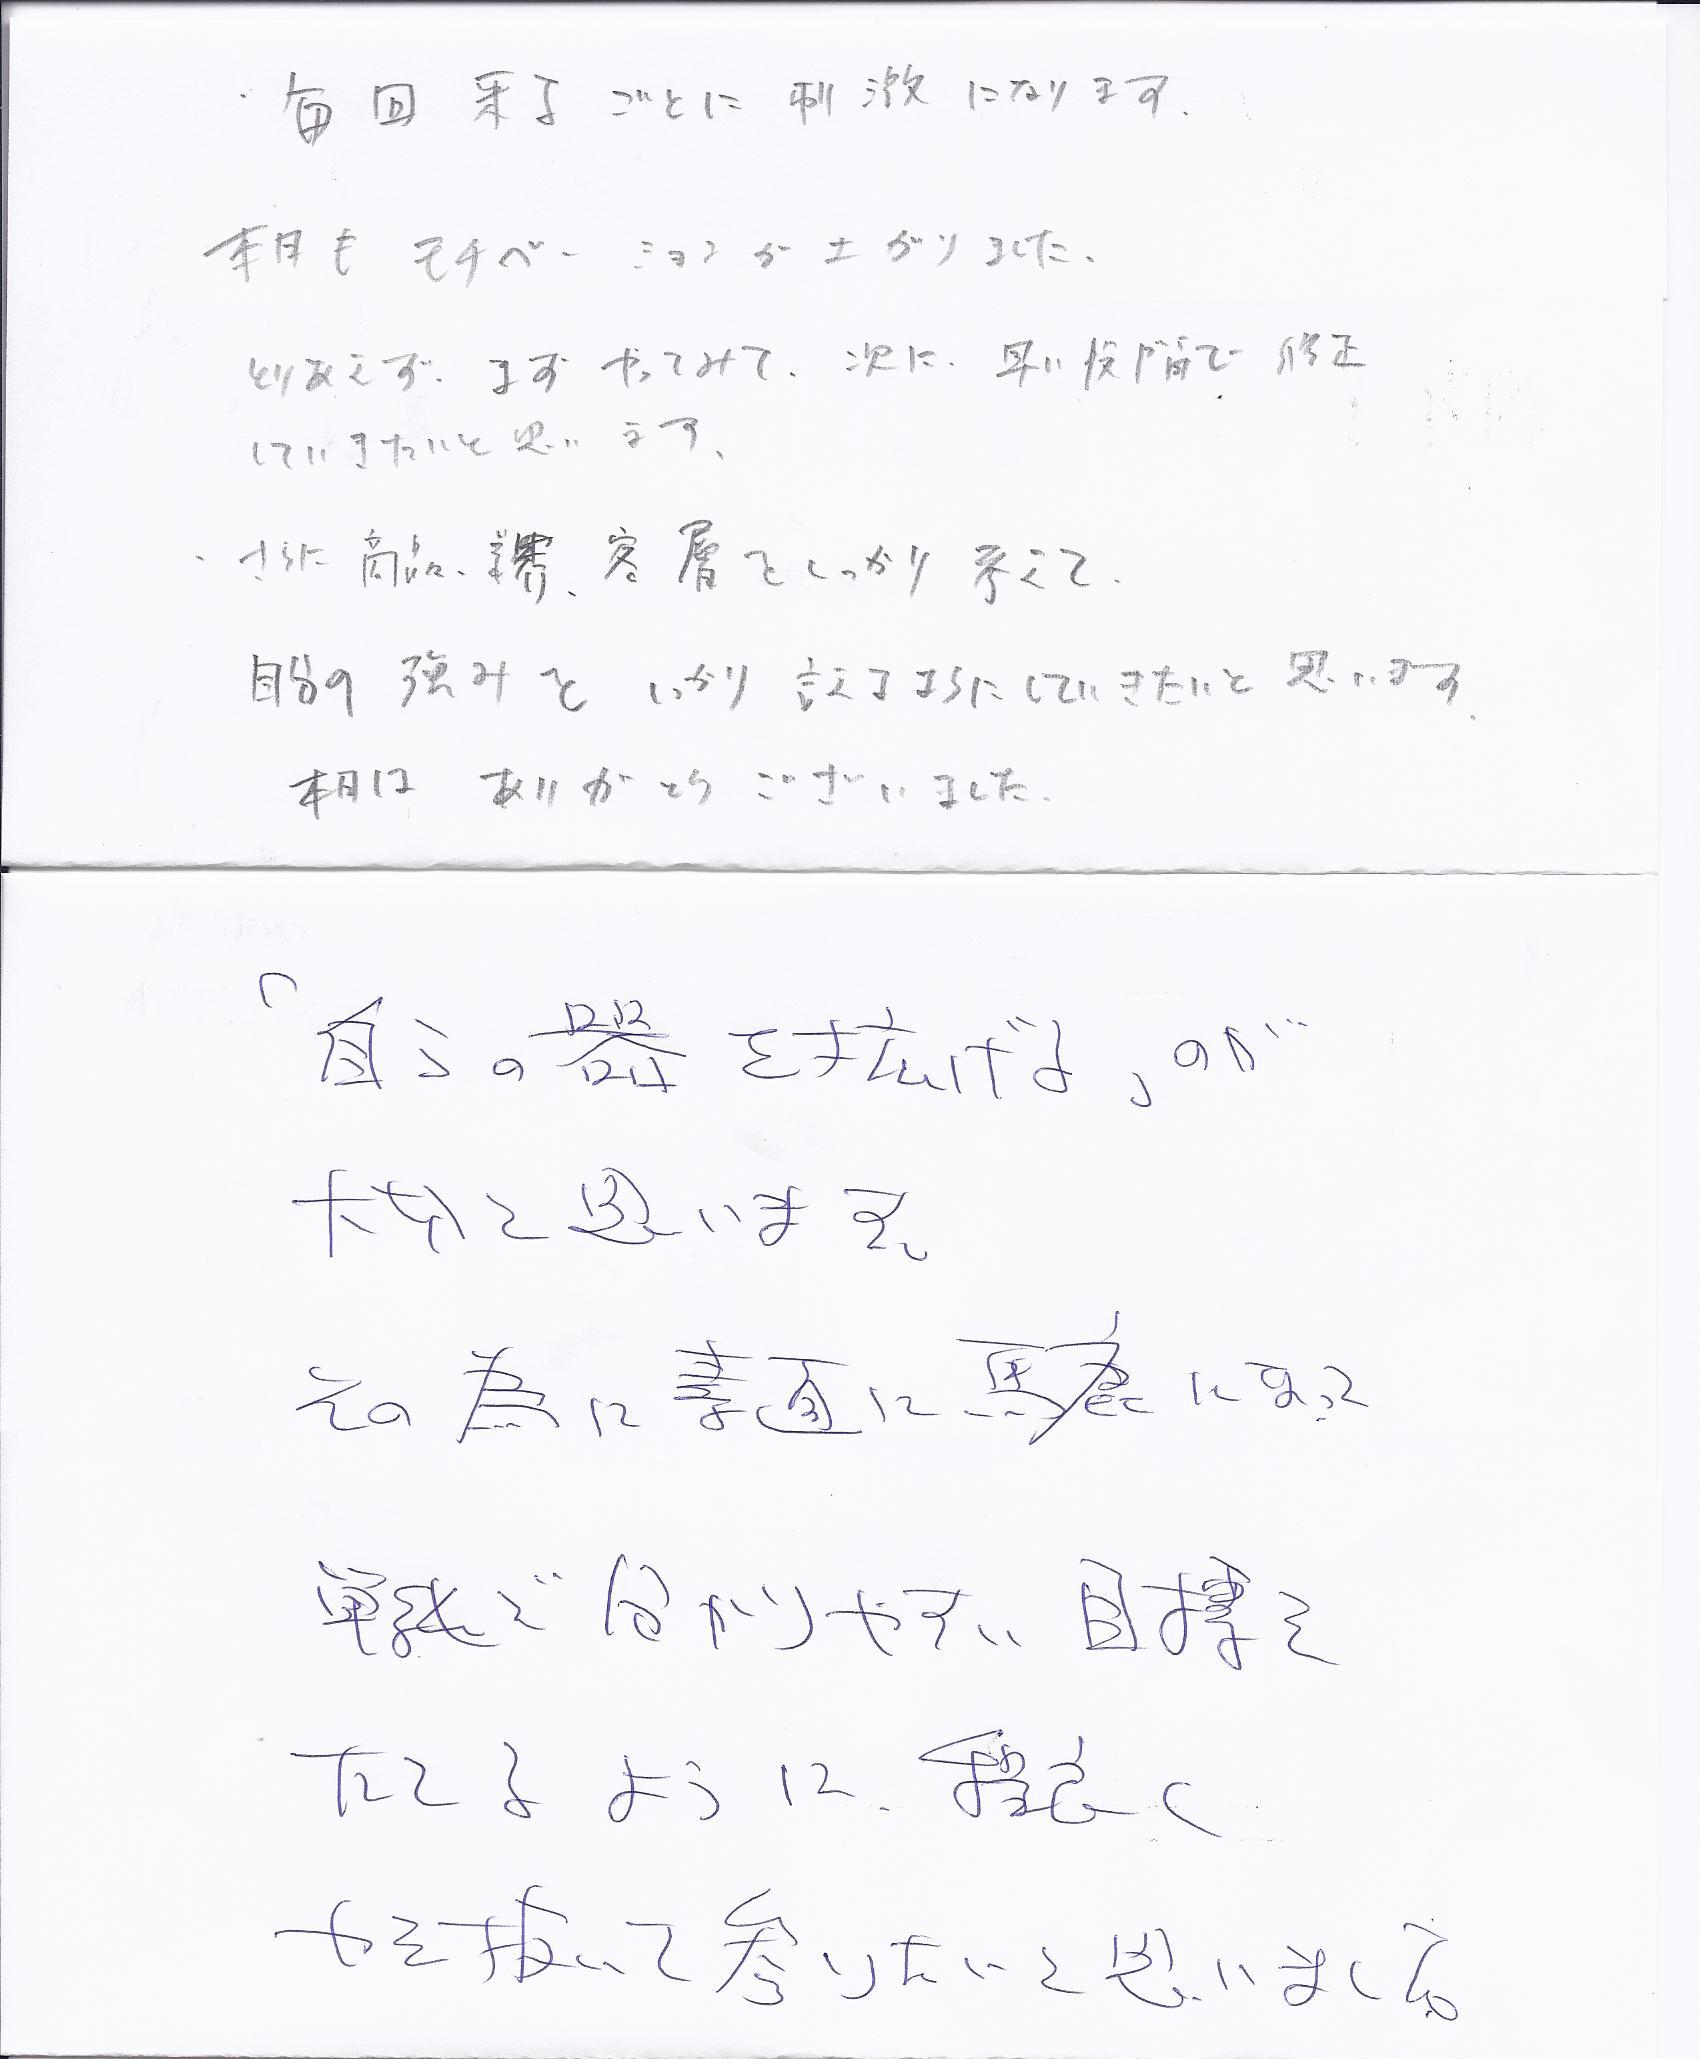 ・毎回来るごとに刺激になります.
本日も モチベーションが上がりました.
とりあえず、まずやってみて、次に、早い段階で修正
していきたいと思います、
・さらに商品、業界、客層をしっかり考えて、
自分の強みをしっかり言えるようにしていきたいと思います.
本日は ありがとうございました.
「自らの器を拡げる」のが
大切と思います。
その為に素直に馬鹿になって
単純で分かりやすい目標を
たてるように、程良く
力を抜いて参りたいと思いました。